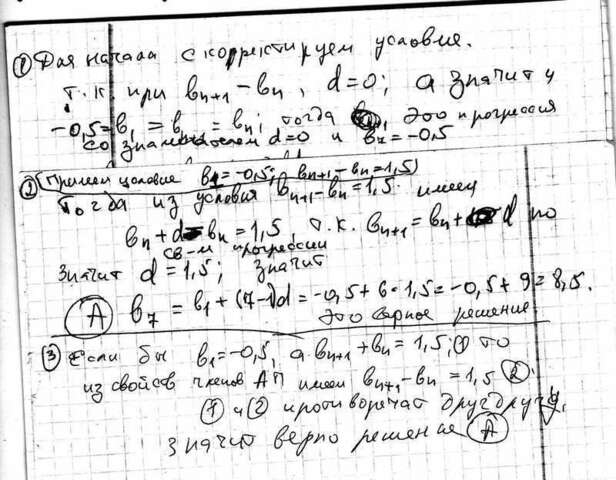 ① Для начала скорректируем условие.
т.к при bn+1 - bn, d=0; а значит и
-0,5 = b1 = b = bn; тогда это прогрессия
со знаменателем d=0 и b7 = -0,5
② (Примем условие b1 = -0,5; bn+1 - bn = 1,5)
Тогда из условия bn+1 - bn = 1,5. имеем
bn + d - bn = 1,5, т.к. bn+1 = bn + d по
св-м прогрессии
значит d = 1,5; значит
Ⓐ b7 = b1 + (7-1)d = -0,5 + 6·1,5 = -0,5 + 9 = 8,5.
Это верное решение
③ Если бы b1 = -0,5, а bn+1 + bn = 1,5; ① то
из свойств членов АП имеем bn+1 - bn = 1,5 ②.
① и ② противоречат друг другу,
значит верно решение Ⓐ